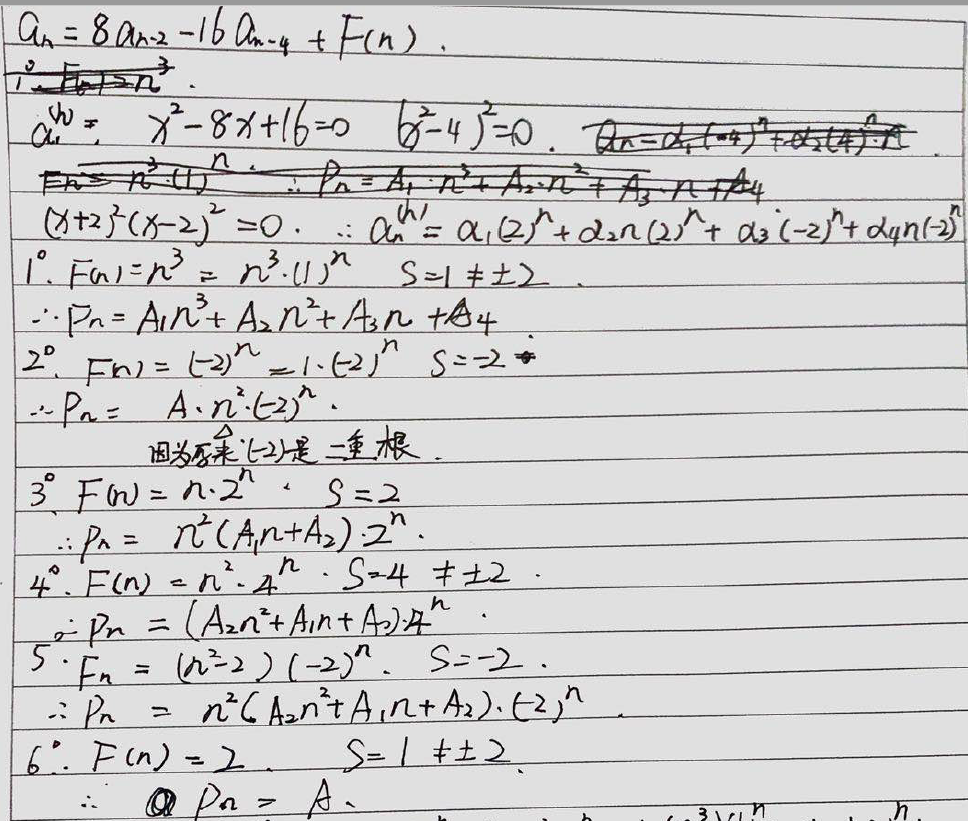 aₙ = 8aₙ₋₂ - 16aₙ₋₄ + F(n).
1° F(n)=n³.
aₙ⁽ʰ⁾ = x² - 8x + 16 = 0 (x²-4)² = 0. aₙ = α₁(-4)ⁿ + α₂(4)ⁿ·n
Fn = n³·(1)ⁿ. ∴ Pn = A₁·n³ + A₂·n² + A₃·n + A₄
(x+2)²(x-2)² = 0. ∴ aₙ⁽ʰ⁾ = α₁(2)ⁿ + α₂n(2)ⁿ + α₃·(-2)ⁿ + α₄n(-2)ⁿ
1°. F(n) = n³ = n³·(1)ⁿ S=1 ≠ ±2.
∴ Pn = A₁n³ + A₂n² + A₃n + A₄
2°. F(n) = (-2)ⁿ = 1·(-2)ⁿ S=-2
∴ Pn = A·n²·(-2)ⁿ.
△
因为原来(-2)是二重根.
3° F(n) = n·2ⁿ. S=2
∴ Pn = n²(A₁n+A₂)·2ⁿ.
4°. F(n) = n²·4ⁿ. S=4 ≠ ±2.
∴ Pn = (A₂n²+A₁n+A₀)·4ⁿ.
5. Fn = (n²-2)(-2)ⁿ. S=-2.
∴ Pn = n²(A₂n²+A₁n+A₂)·(-2)ⁿ.
6°. F(n) = 2. S=1 ≠ ±2.
∴ Pn = A.